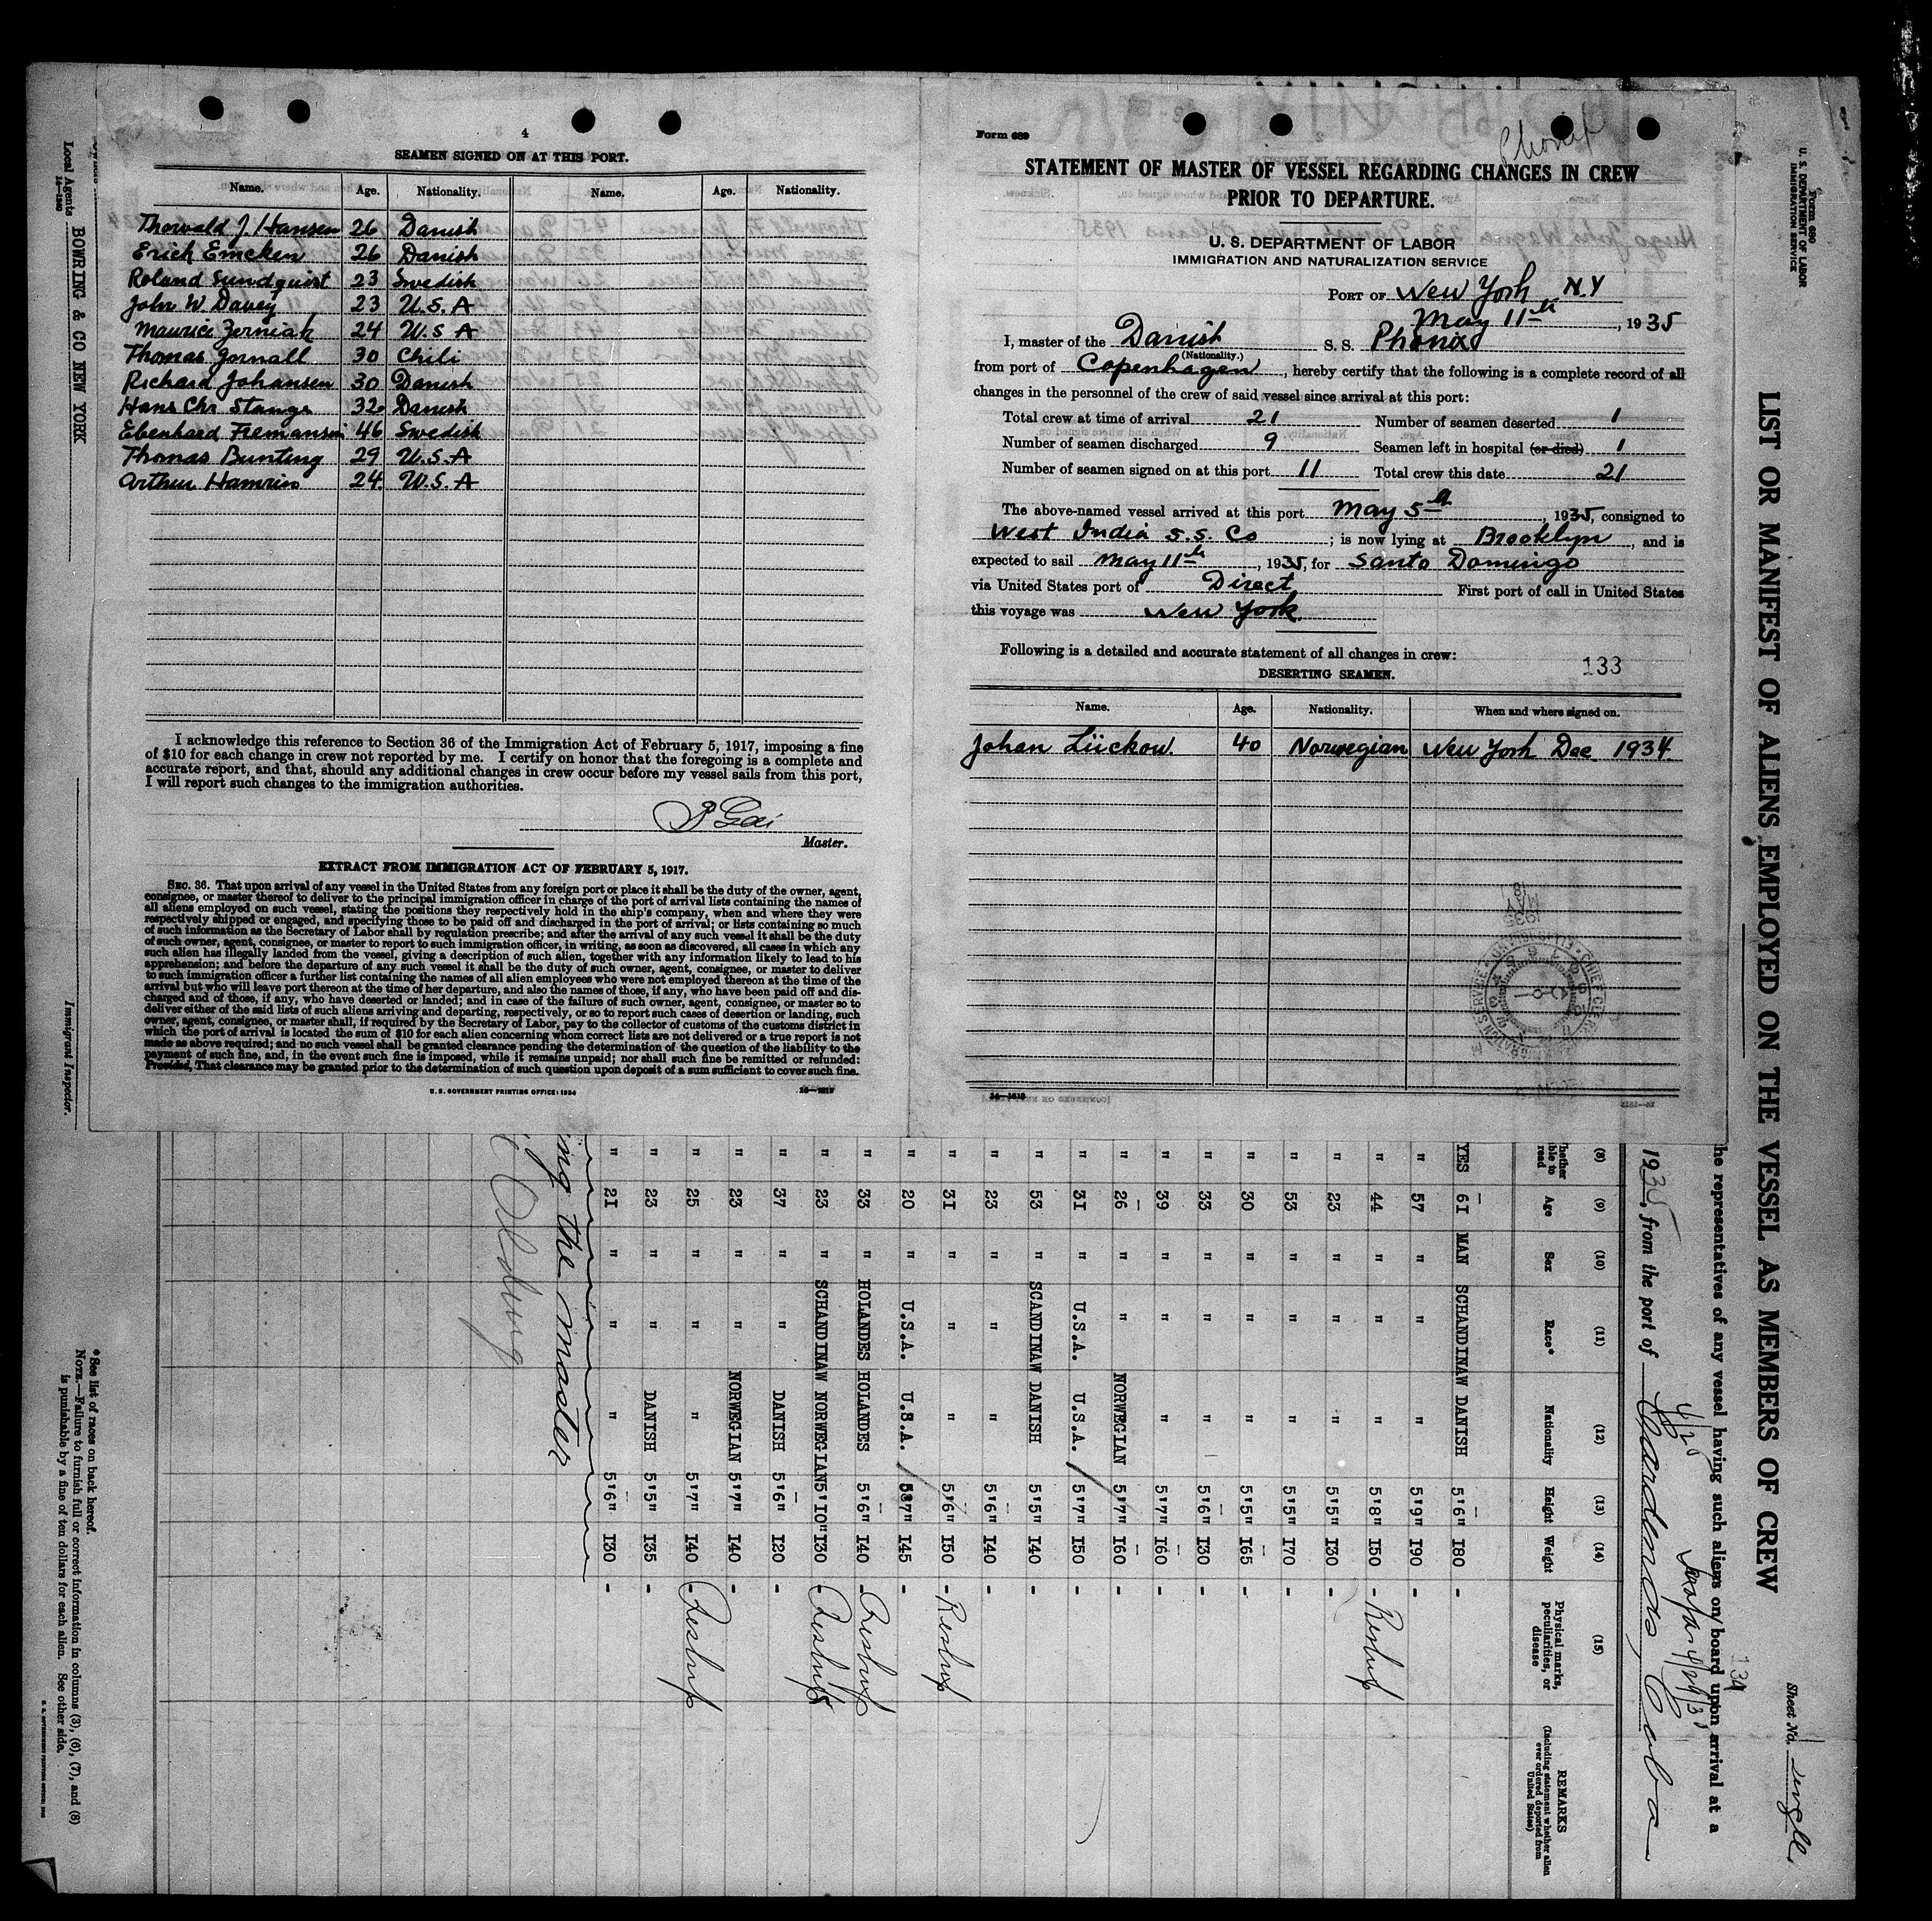 4
SEAMEN SIGNED ON AT THIS PORT.
Name. Age. Nationality. Name. Age. Nationality.
Thorvald J Hansen 26 Danish
Erich Emcken 26 Danish
Roland Sundquist 23 Swedish
John W. Davey 23 U.S.A
Maurice Zerniak 24 U.S A
Thomas Gornall 30 Chili
Richard Johansen 30 Danish
Hans Chr Stange 32 Danish
46 Swedish
Thomas Bunting 29 U.S.A
Arthur 24 U.S.A
I acknowledge this reference to Section 36 of the Immigration Act of February 5, 1917, imposing a fine
of $10 for each change in crew not reported by me. I certify on honor that the foregoing is a complete and
accurate report, and that, should any additional changes in crew occur before my vessel sails from this port,
I will report such changes to the immigration authorities.
Master.
EXTRACT FROM IMMIGRATION ACT OF FEBRUARY 5, 1917.
SEC. 36. That upon arrival of any vessel in the United States from any foreign port or place it shall be the duty of the owner, agent,
consignee, or master thereof to deliver to the principal immigration officer in charge of the port of arrival lists containing the names of
all aliens employed on such vessel, stating the positions they respectively hold in the ship's company, when and where they were
respectively shipped or engaged, and specifying those to be paid off and discharged in the port of arrival; or lists containing so much
of such information as the Secretary of Labor shall by regulation prescribe; and after the arrival of any such vessel it shall be the duty
of such owner, agent, consignee, or master to report to such immigration officer, in writing, as soon as discovered, all cases in which any
such alien has illegally landed from the vessel, giving a description of such alien, together with any information likely to lead to his
apprehension; and before the departure of any such vessel it shall be the duty of such owner, agent, consignee, or master to deliver
to such immigration officer a further list containing the names of all alien employees who were not employed thereon at the time of the
arrival but who will leave port thereon at the time of her departure, and also the names of those, if any, who have been paid off and dis-
charged and of those, if any, who have deserted or landed; and in case of the failure of such owner, agent, consignee, or master so to
deliver either of the said lists of such aliens arriving and departing, respectively, or so to report such cases of desertion or landing, such
owner, agent, consignee, or master shall, if required by the Secretary of Labor, pay to the collector of customs of the customs district in
which the port of arrival is located the sum of $10 for each alien concerning whom correct lists are not delivered or a true report is not
made as above required; and no such vessel shall be granted clearance pending the determination of the question of the liability to the
payment of such fine, and, in the event such fine is imposed, while it remains unpaid; nor shall such fine be remitted or refunded:
Provided, That clearance may be granted prior to the determination of such question upon deposit of a sum sufficient to cover such fine.
U. S. GOVERNMENT PRINTING OFFICE: 1934
Form 689
STATEMENT OF MASTER OF VESSEL REGARDING CHANGES IN CREW
PRIOR TO DEPARTURE.
U. S. DEPARTMENT OF LABOR
IMMIGRATION AND NATURALIZATION SERVICE
PORT OF New York N.Y
May 11th, 1935
I, master of the Danish S. S. Phonix
(Nationality.)
from port of Copenhagen, hereby certify that the following is a complete record of all
changes in the personnel of the crew of said vessel since arrival at this port:
Total crew at time of arrival 21 Number of seamen deserted 1
Number of seamen discharged 9 Seamen left in hospital (or died) 1
Number of seamen signed on at this port 11 Total crew this date 21
The above-named vessel arrived at this port May 5th, 1935, consigned to
West India S.S. Co; is now lying at Brooklyn, and is
expected to sail May 11th, 1935, for Santo Domingo
via United States port of Direct First port of call in United States
this voyage was New York
Following is a detailed and accurate statement of all changes in crew:
133
DESERTING SEAMEN.
Name. Age. Nationality. When and where signed on.
Johan Lückow. 40 Norwegian New York Dec 1934.
Local Agents BOWRING & CO NEW YORK
Immigrant Inspector.
Form 680
U. S. DEPARTMENT OF LABOR
IMMIGRATION SERVICE
Sheet No.
LIST OR MANIFEST OF ALIENS EMPLOYED ON THE VESSEL AS MEMBERS OF CREW
134
he representatives of any vessel having such aliens on board upon arrival at a
1935, from the port of Cardenas, Cuba
(8) (9) (10) (11) (12) (13) (14) (15)
Age Sex Race* Nationality Height Weight Physical marks, peculiarities, or disease REMARKS
(Including statement whether alien ever ordered deported from United States)
YES 61 MAN SCHANDINAW DANISH 5'6" 180 -
" 57 " " " 5'9" 190 -
" 44 " " " 5'8" 150 -
" 23 " " " 5'5" 130 -
" 53 " " " 5'5" 170 -
" 30 " " " 5'5" 165 -
" 33 " " " 5'6" 130 -
" 39 " " " 5'7" 160 -
" 26 " " NORWEGIAN 5'7" 160 -
" 31 " U.S.A. U.S.A. 5'7" 150 -
" 53 " SCANDINAW DANISH 5'5" 140 -
" 23 " " " 5'6" 140 -
" 31 " " " 5'6" 150 -
" 20 " U.S.A. U.S.A. 5'7" 145 -
" 33 " HOLANDES HOLANDES 5'6" 140 -
" 23 " SCHANDINAW NORWEGIAN 5'10" 130 -
" 37 " " DANISH 5'6" 120 -
" 23 " " NORWEGIAN 5'7" 140 -
" 25 " " " 5'7" 140 -
" 23 " " DANISH 5'5" 135 -
" 21 " " " 5'6" 130 -
ing the master
*See list of races on back hereof.
NOTE.—Failure to furnish full or correct information in columns (3), (6), (7), and (8)
is punishable by a fine of ten dollars for each alien. See other side.